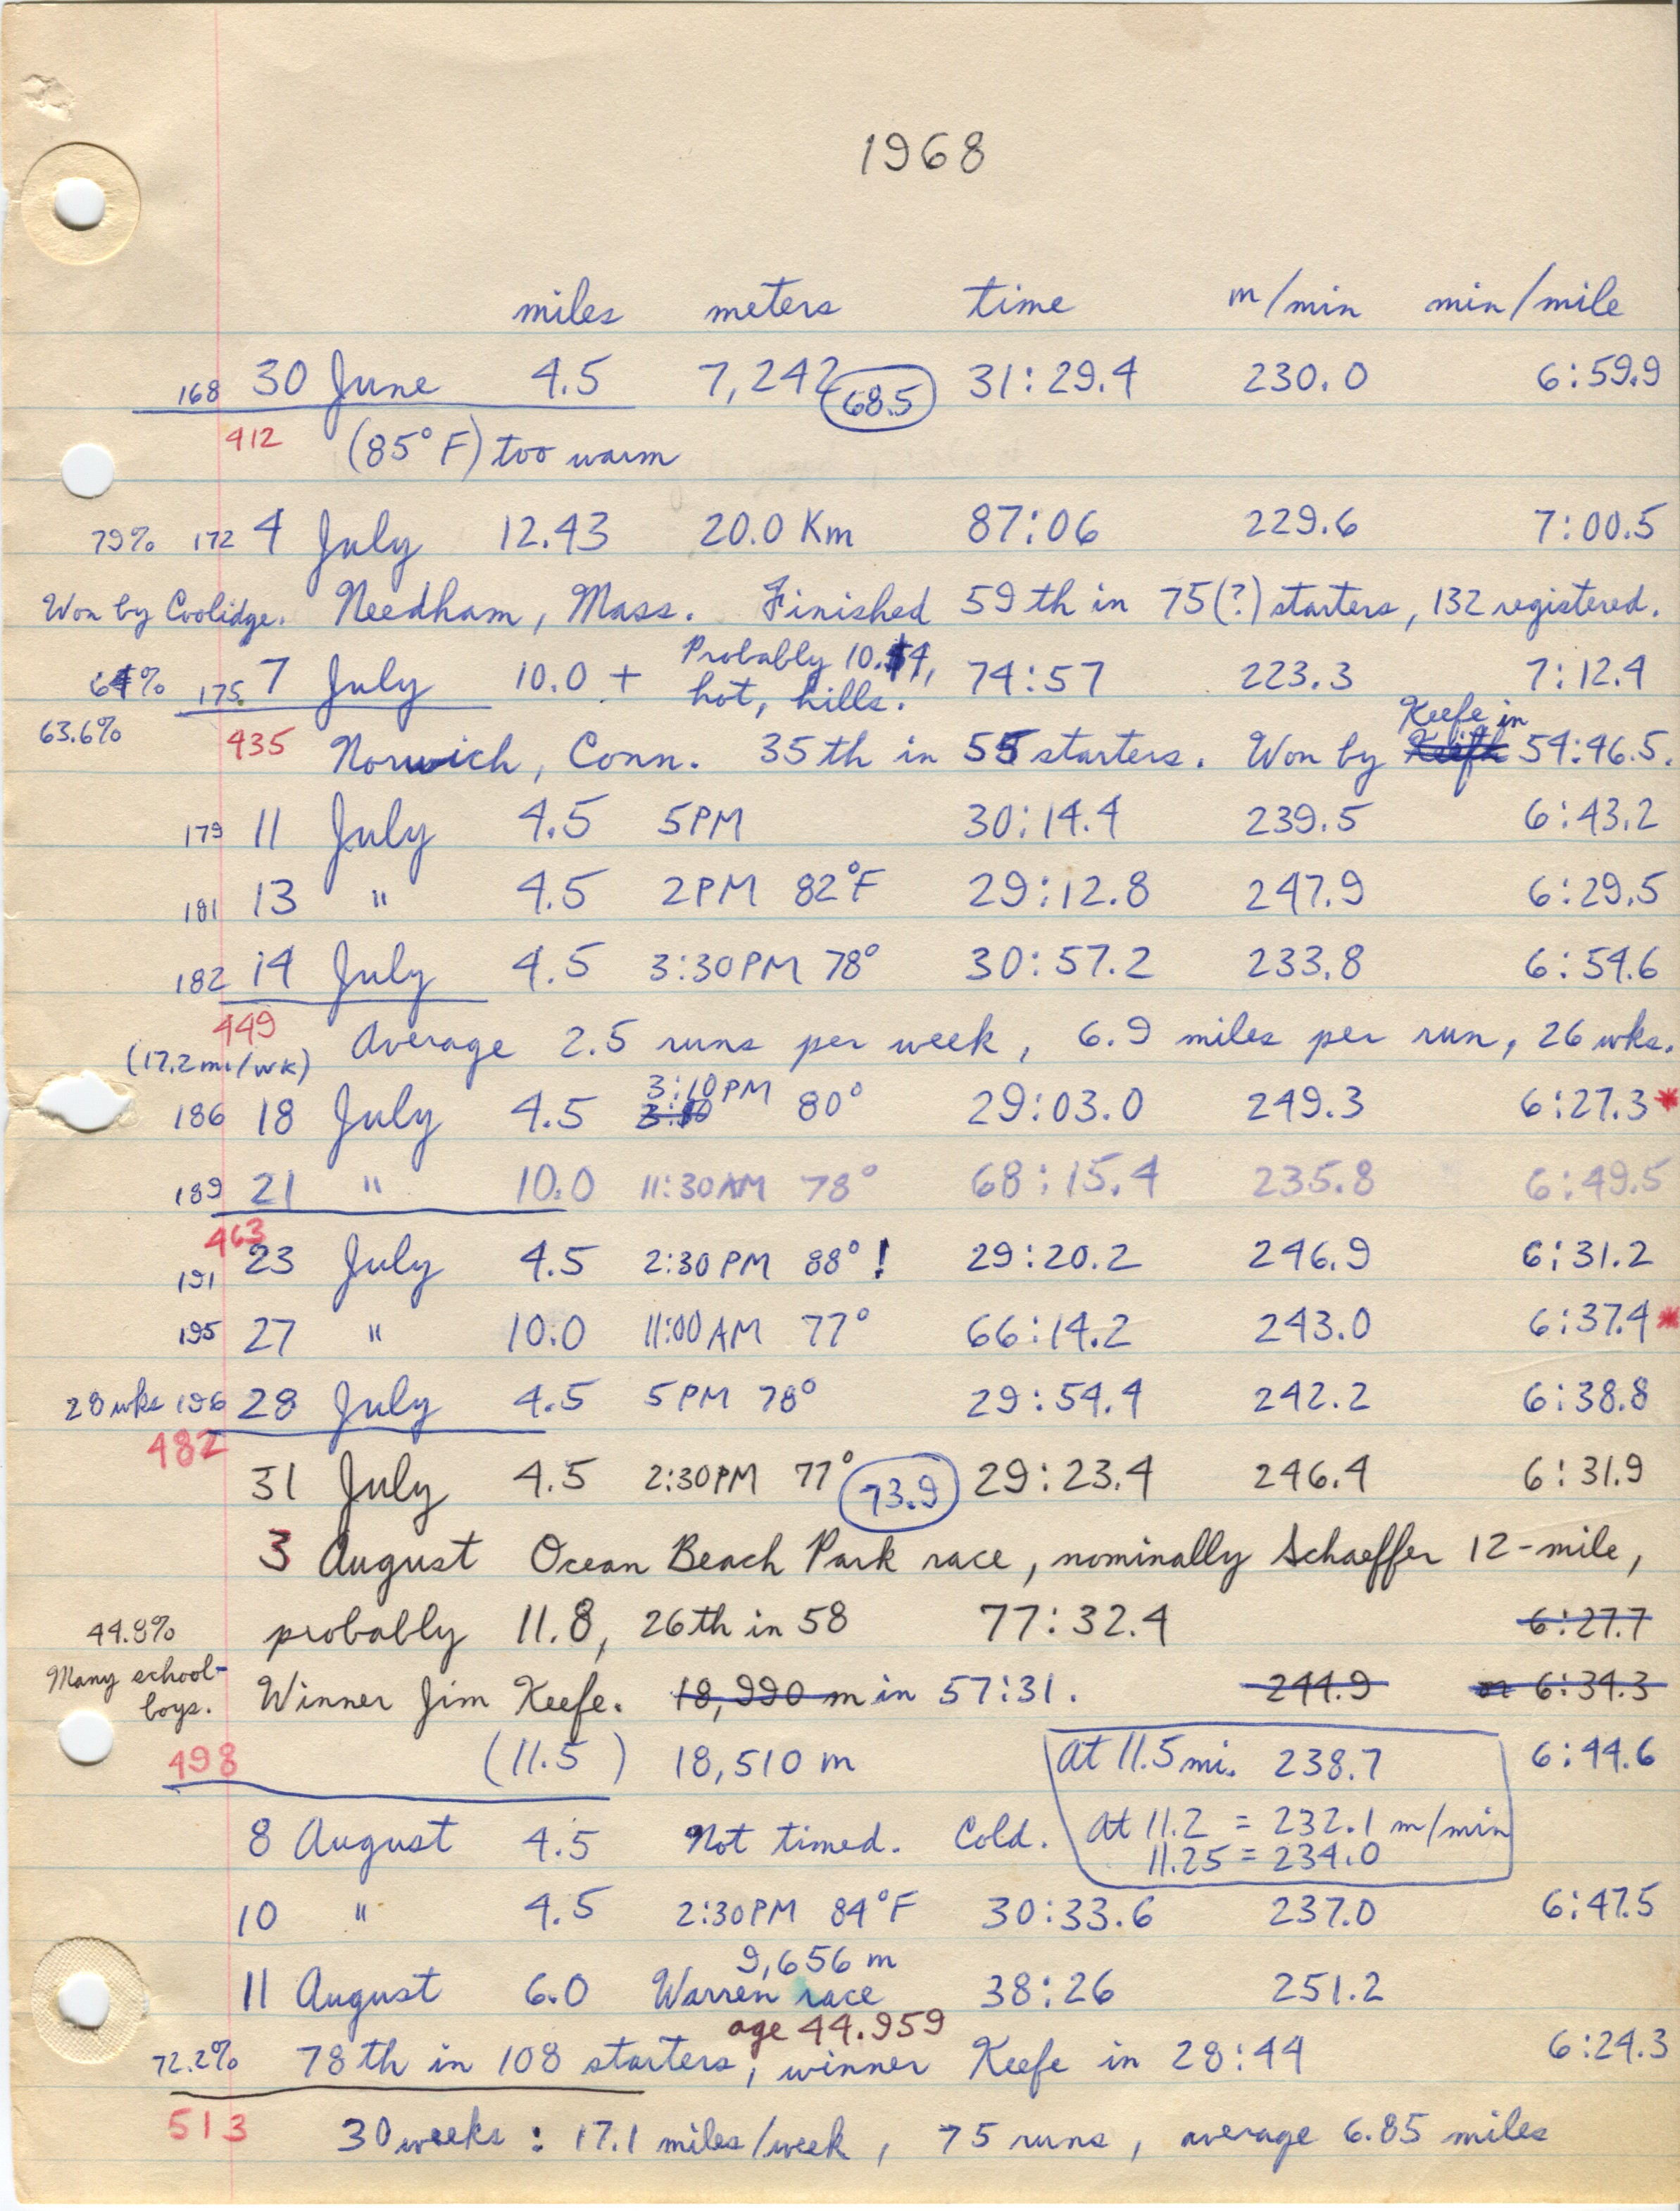 1968
miles meters time m/min min/mile
168 30 June 4.5 7,242 68.5 31:29.4 230.0 6:59.9
412 (85°F) too warm
79% 172 4 July 12.43 20.0 Km 87:06 229.6 7:00.5
Won by Coolidge. Needham, Mass. Finished 59th in 75(?) starters, 132 registered.
Probably 10.4,
64% 175 7 July 10.0 + hot, hills. 74:57 223.3 7:12.4
63.6% Keefe in
435 Norwich, Conn. 35th in 55 starters. Won by 54:46.5.
179 11 July 4.5 5PM 30:14.4 239.5 6:43.2
181 13 " 4.5 2PM 82°F 29:12.8 247.9 6:29.5
182 14 July 4.5 3:30PM 78° 30:57.2 233.8 6:54.6
449 Average 2.5 runs per week, 6.9 miles per run, 26 wks.
(17.2 mi/wk)
3:10PM
186 18 July 4.5 3:10 80° 29:03.0 249.3 6:27.3*
189 21 " 10.0 11:30AM 78° 68:15.4 235.8 6:49.5
463
191 23 July 4.5 2:30PM 88°! 29:20.2 246.9 6:31.2
195 27 " 10.0 11:00AM 77° 66:14.2 243.0 6:37.4*
28 wks 196 28 July 4.5 5PM 78° 29:54.4 242.2 6:38.8
482
31 July 4.5 2:30PM 77° 73.9 29:23.4 246.4 6:31.9
3 August Ocean Beach Park race, nominally Schaeffer 12-mile,
44.8% probably 11.8, 26th in 58 77:32.4 6:27.7
Many school-
boys. Winner Jim Keefe. 18,990 m in 57:31. 244.9 or 6:34.3
498 (11.5) 18,510 m at 11.5 mi. 238.7 6:44.6
8 August 4.5 Not timed. Cold. At 11.2 = 232.1 m/min
11.25 = 234.0
10 " 4.5 2:30PM 84°F 30:33.6 237.0 6:47.5
9,656 m
11 August 6.0 Warren race 38:26 251.2
age 44.959
72.2% 78th in 108 starters, winner Keefe in 28:44 6:24.3
513 30 weeks: 17.1 miles/week, 75 runs, average 6.85 miles